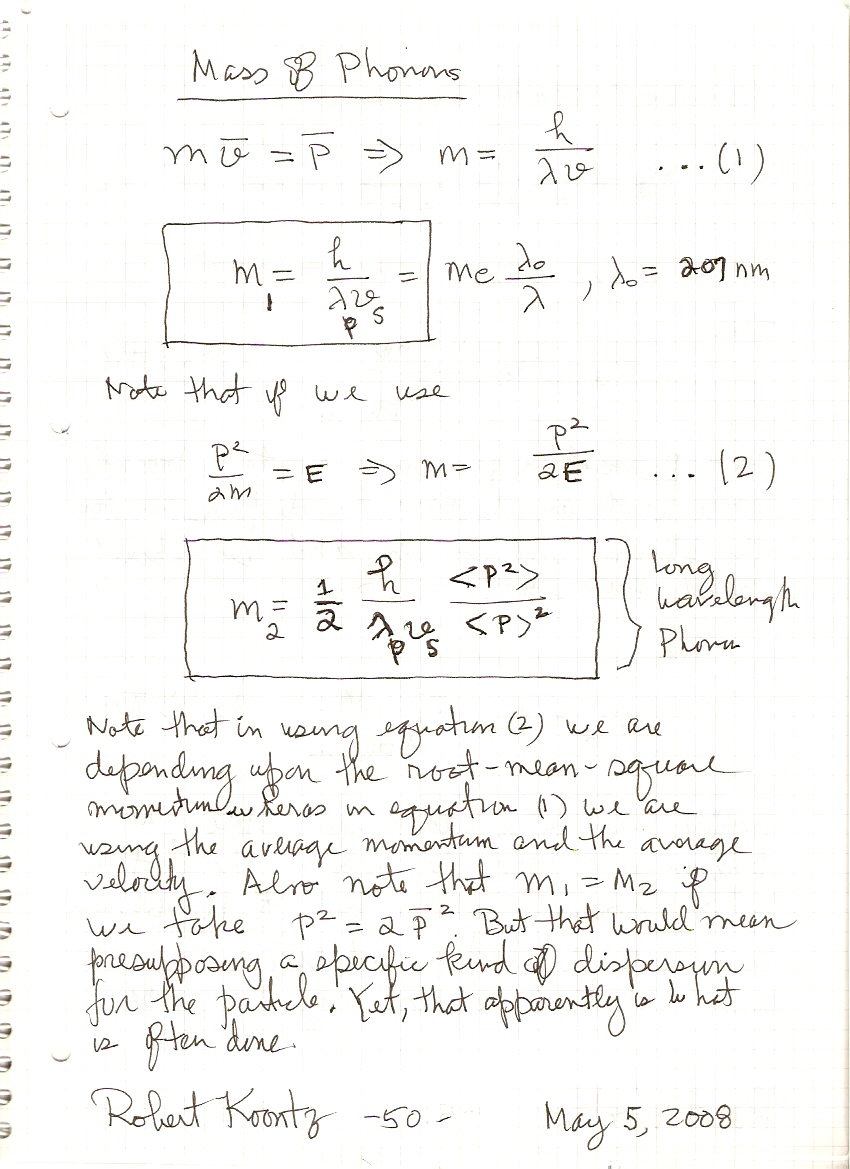 Mass of Phonons
m v̄ = p̄ ⇒ m = h / λv ...(1)
m₁ = h / λₚvₛ = me λ₀ / λ , λ₀ = 207 nm
Note that if we use
p² / 2m = E ⇒ m = p² / 2E ... (2)
m₂ = 1/2 h / λₚvₛ <p²> / <p>² } Long
wavelength
Phonon
Note that in using equation (2) we are
depending upon the root-mean-square
momentum wheras in equation (1) we are
using the average momentum and the average
velocity. Also note that m₁ = M₂ if
we take p² = 2 p̄². But that would mean
presupposing a specific kind of dispersion
for the particle. Yet, that apparently is what
is often done.
Robert Koontz -50- May 5, 2008